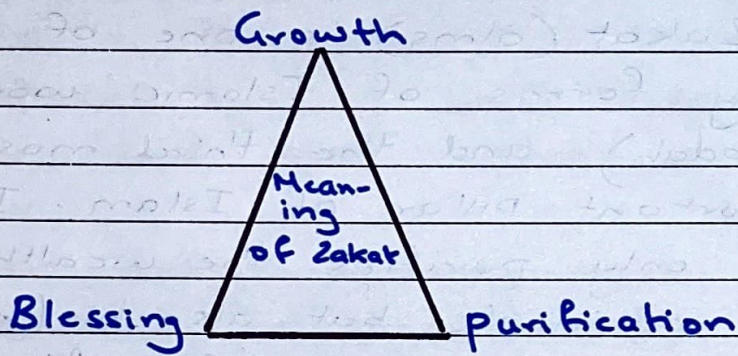 Growth
Mean-
ing
of Zakat
Blessing
purification